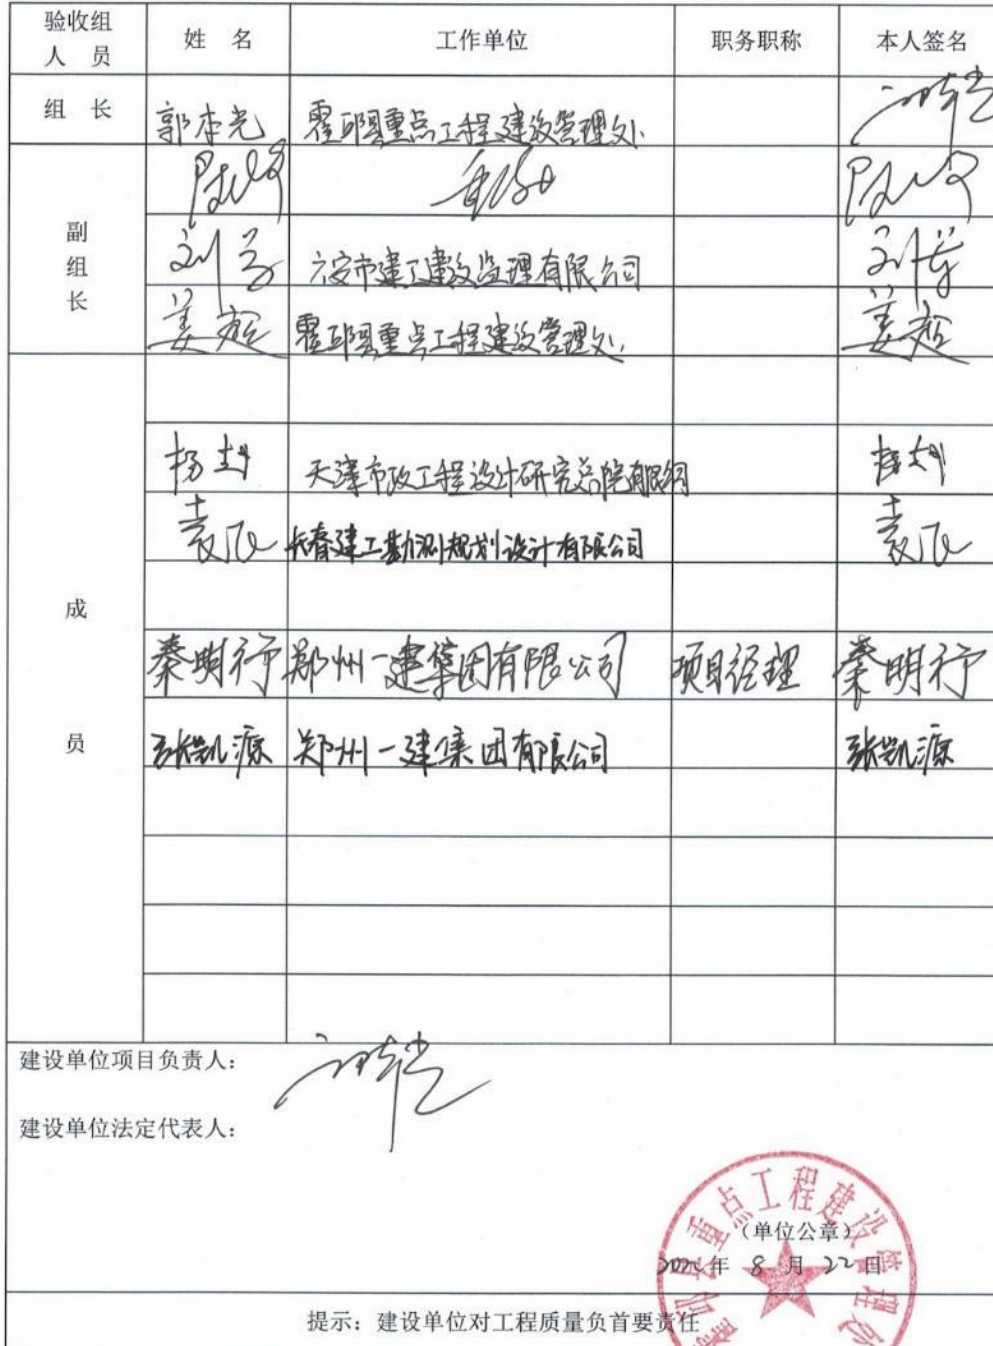 验收组
人 员
姓 名
工作单位
职务职称
本人签名
组 长
郭本光 霍邱县重点工程建设管理处
副
组
长
六安市建工建设监理有限公司
姜 霍邱县重点工程建设管理处 姜
杨 天津市政工程设计研究总院有限公司 杨
袁 长春建工勘测规划设计有限公司 袁
成
秦明行 郑州一建集团有限公司 项目经理 秦明行
员
张凯源 郑州一建集团有限公司 张凯源
建设单位项目负责人：
建设单位法定代表人：
霍邱县重点工程建设管理处
（单位公章）
2022年 8 月 22日
提示：建设单位对工程质量负首要责任